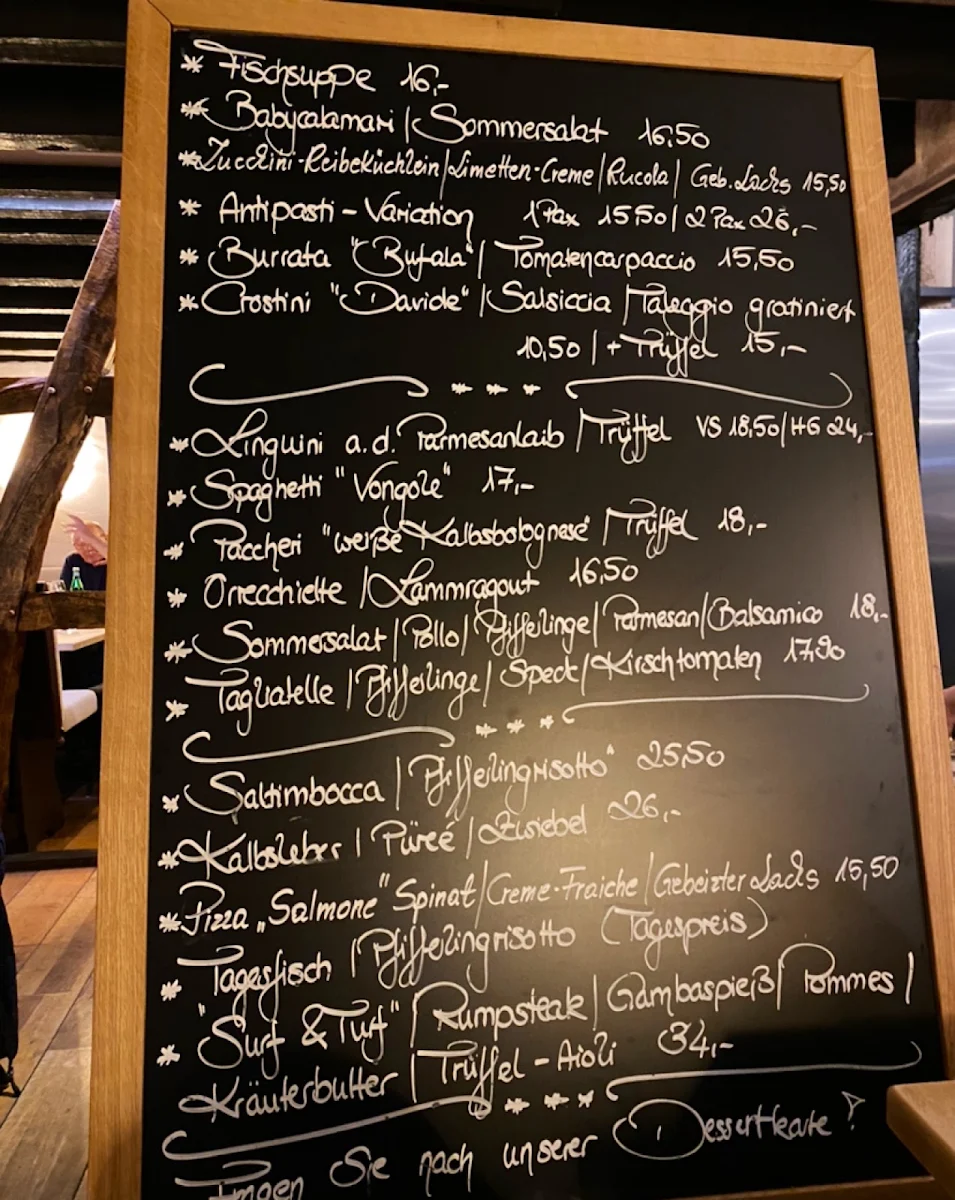 * Fischsuppe 16,-
* Babycalamari | Sommersalat 16,50
* Zucchini-Reibeküchlein | Limetten-Creme | Rucola | Geb. Lachs 15,50
* Antipasti - Variation 1 Pax 15,50 | 2 Pax 26,-
* Burrata "Bufala" | Tomatencarpaccio 15,50
* Crostini "Davide" | Salsiccia | Taleggio gratiniert
10,50 | + Trüffel 15,-
* * *
* Linguini a.d. Parmesanlaib | Trüffel VS 18,50 | HG 24,-
* Spaghetti "Vongole" 17,-
* Paccheri "weiße Kalbsbolognese" | Trüffel 18,-
* Orrecchiette | Lammragout 16,50
* Sommersalat | Pollo | Pfifferlinge | Parmesan | Balsamico 18,-
* Tagliatelle | Pfifferlinge | Speck | Kirschtomaten 17,90
* * *
* Saltimbocca | Pfifferlingrisotto" 25,50
* Kalbsleber | Püreé | Zwiebel 26,-
* Pizza „Salmone" Spinat | Creme-Fraiche | Gebeizter Lachs 15,50
* Tagesfisch | Pfifferlingrisotto (Tagespreis)
* "Surf & Turf" | Rumpsteak | Gambaspieß | Pommes |
Kräuterbutter | Trüffel - Aioli 34,-
* * * *
Fragen Sie nach unserer Dessertkarte!